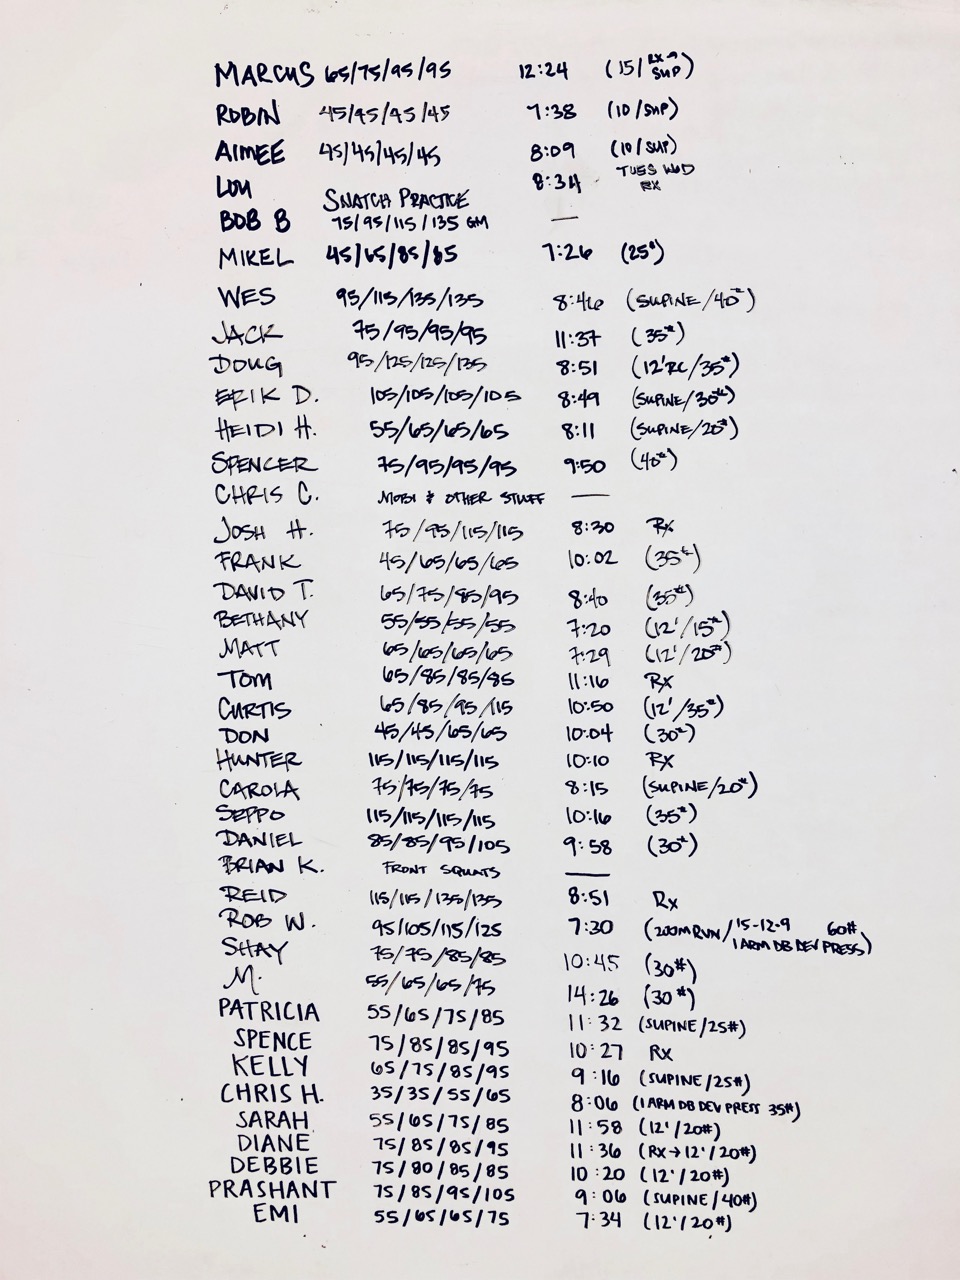 MARCUS 65/75/95/95 12:24 (15/RX→SUP)
ROBIN 45/45/45/45 7:38 (10/SUP)
AIMEE 45/45/45/45 8:09 (10/SUP)
LOU SNATCH PRACTICE 8:34 TUES WOD RX
BOB B 75/95/115/135 GM —
MIKEL 45/65/85/85 7:26 (25#)
WES 95/115/135/135 8:46 (SUPINE/40#)
JACK 75/95/95/95 11:37 (35#)
DOUG 95/125/125/135 8:51 (12'RC/35#)
ERIK D. 105/105/105/105 8:49 (SUPINE/30#)
HEIDI H. 55/65/65/65 8:11 (SUPINE/20#)
SPENCER 75/95/95/95 9:50 (40#)
CHRIS C. MOBI & OTHER STUFF —
JOSH H. 75/95/115/115 8:30 RX
FRANK 45/65/65/65 10:02 (35#)
DAVID T. 65/75/85/95 8:40 (35#)
BETHANY 55/55/55/55 7:20 (12'/15#)
MATT 65/65/65/65 7:29 (12'/20#)
TOM 65/85/85/85 11:16 RX
CURTIS 65/85/95/115 10:50 (12'/35#)
DON 45/45/65/65 10:04 (30#)
HUNTER 115/115/115/115 10:10 RX
CAROLA 75/75/75/75 8:15 (SUPINE/20#)
SEPPO 115/115/115/115 10:16 (35#)
DANIEL 85/85/95/105 9:58 (30#)
BRIAN K. FRONT SQUATS —
REID 115/115/135/135 8:51 Rx
ROB W. 95/105/115/125 7:30 (200M RUN/15-12-9 60# 1 ARM DB DEV PRESS)
SHAY 75/75/85/85 10:45 (30#)
M. 55/65/65/75 14:26 (30#)
PATRICIA 55/65/75/85 11:32 (SUPINE/25#)
SPENCE 75/85/85/95 10:27 RX
KELLY 65/75/85/95 9:16 (SUPINE/25#)
CHRIS H. 35/35/55/65 8:06 (1 ARM DB DEV PRESS 35#)
SARAH 55/65/75/85 11:58 (12'/20#)
DIANE 75/85/85/95 11:36 (RX→12'/20#)
DEBBIE 75/80/85/85 10:20 (12'/20#)
PRASHANT 75/85/95/105 9:06 (SUPINE/40#)
EMI 55/65/65/75 7:34 (12'/20#)